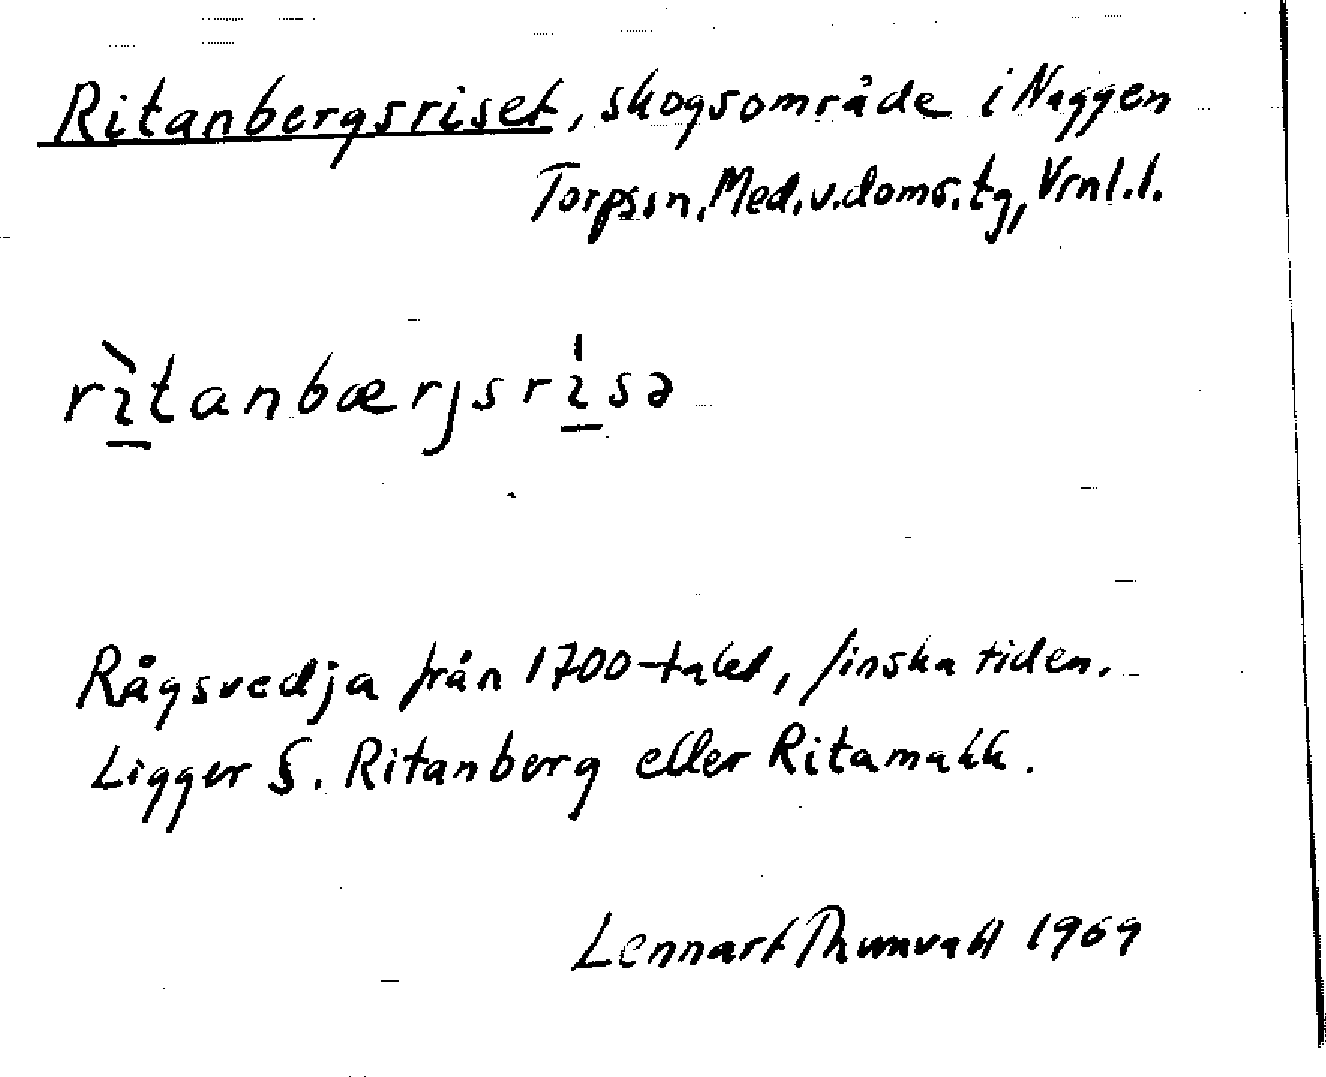 Ritanbergsriset, skogsområde i Naggen
Torps sn, Med. v. doms. tg, Vrnl. l.
rı̀tanbærjsrı̍sə
Rågsvedja från 1700-talet, finska tiden.
Ligger S. Ritanberg eller Ritamakk.
Lennart Thunvall 1969